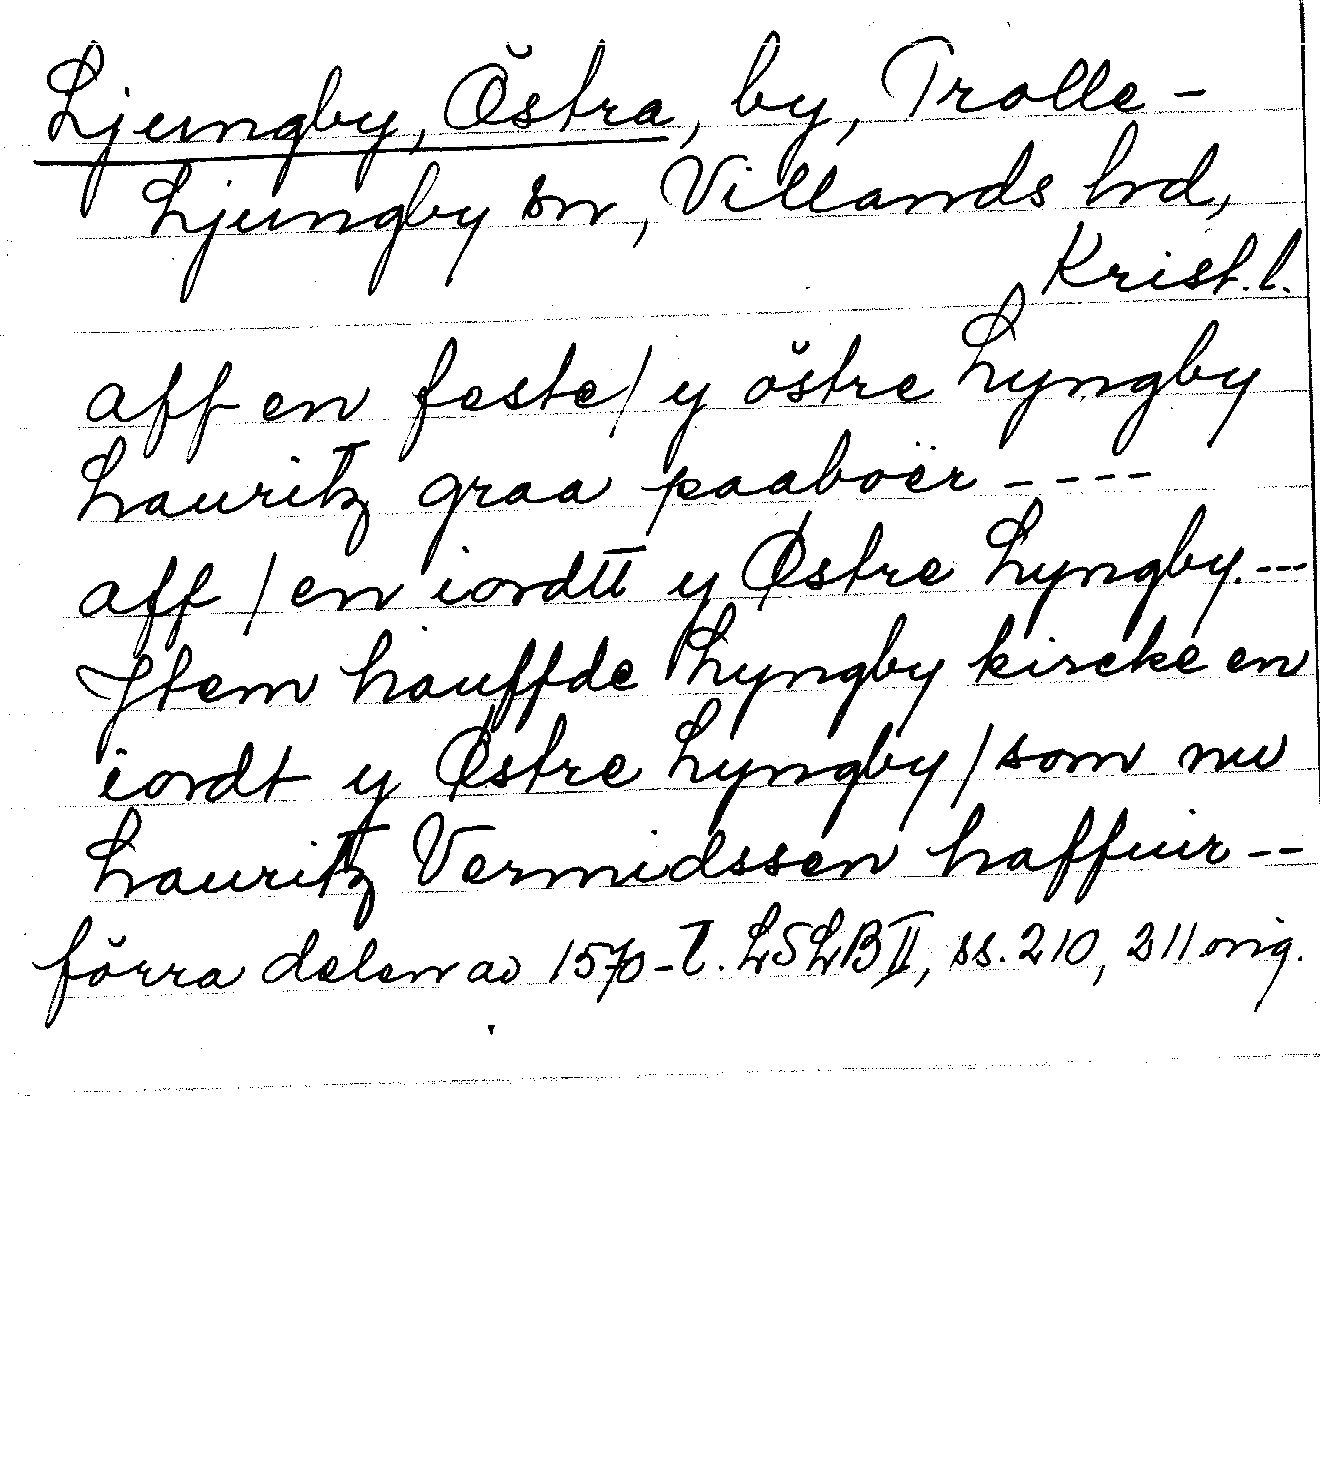 Ljungby, Östra, by, Trolle-
Ljungby sn, Villands hd,
Krist. l.
aff en feste / y östre Lyngby
Lauritz graa paaboër ----
aff / en iordtt y Østre Lyngby. ---
Jtem hauffde Lyngby kircke en
iordt y Østre Lyngby / som nu
Lauritz Vermidssen haffuir --
förra delen av 1570-t. LSLB II, ss. 210, 211 orig.